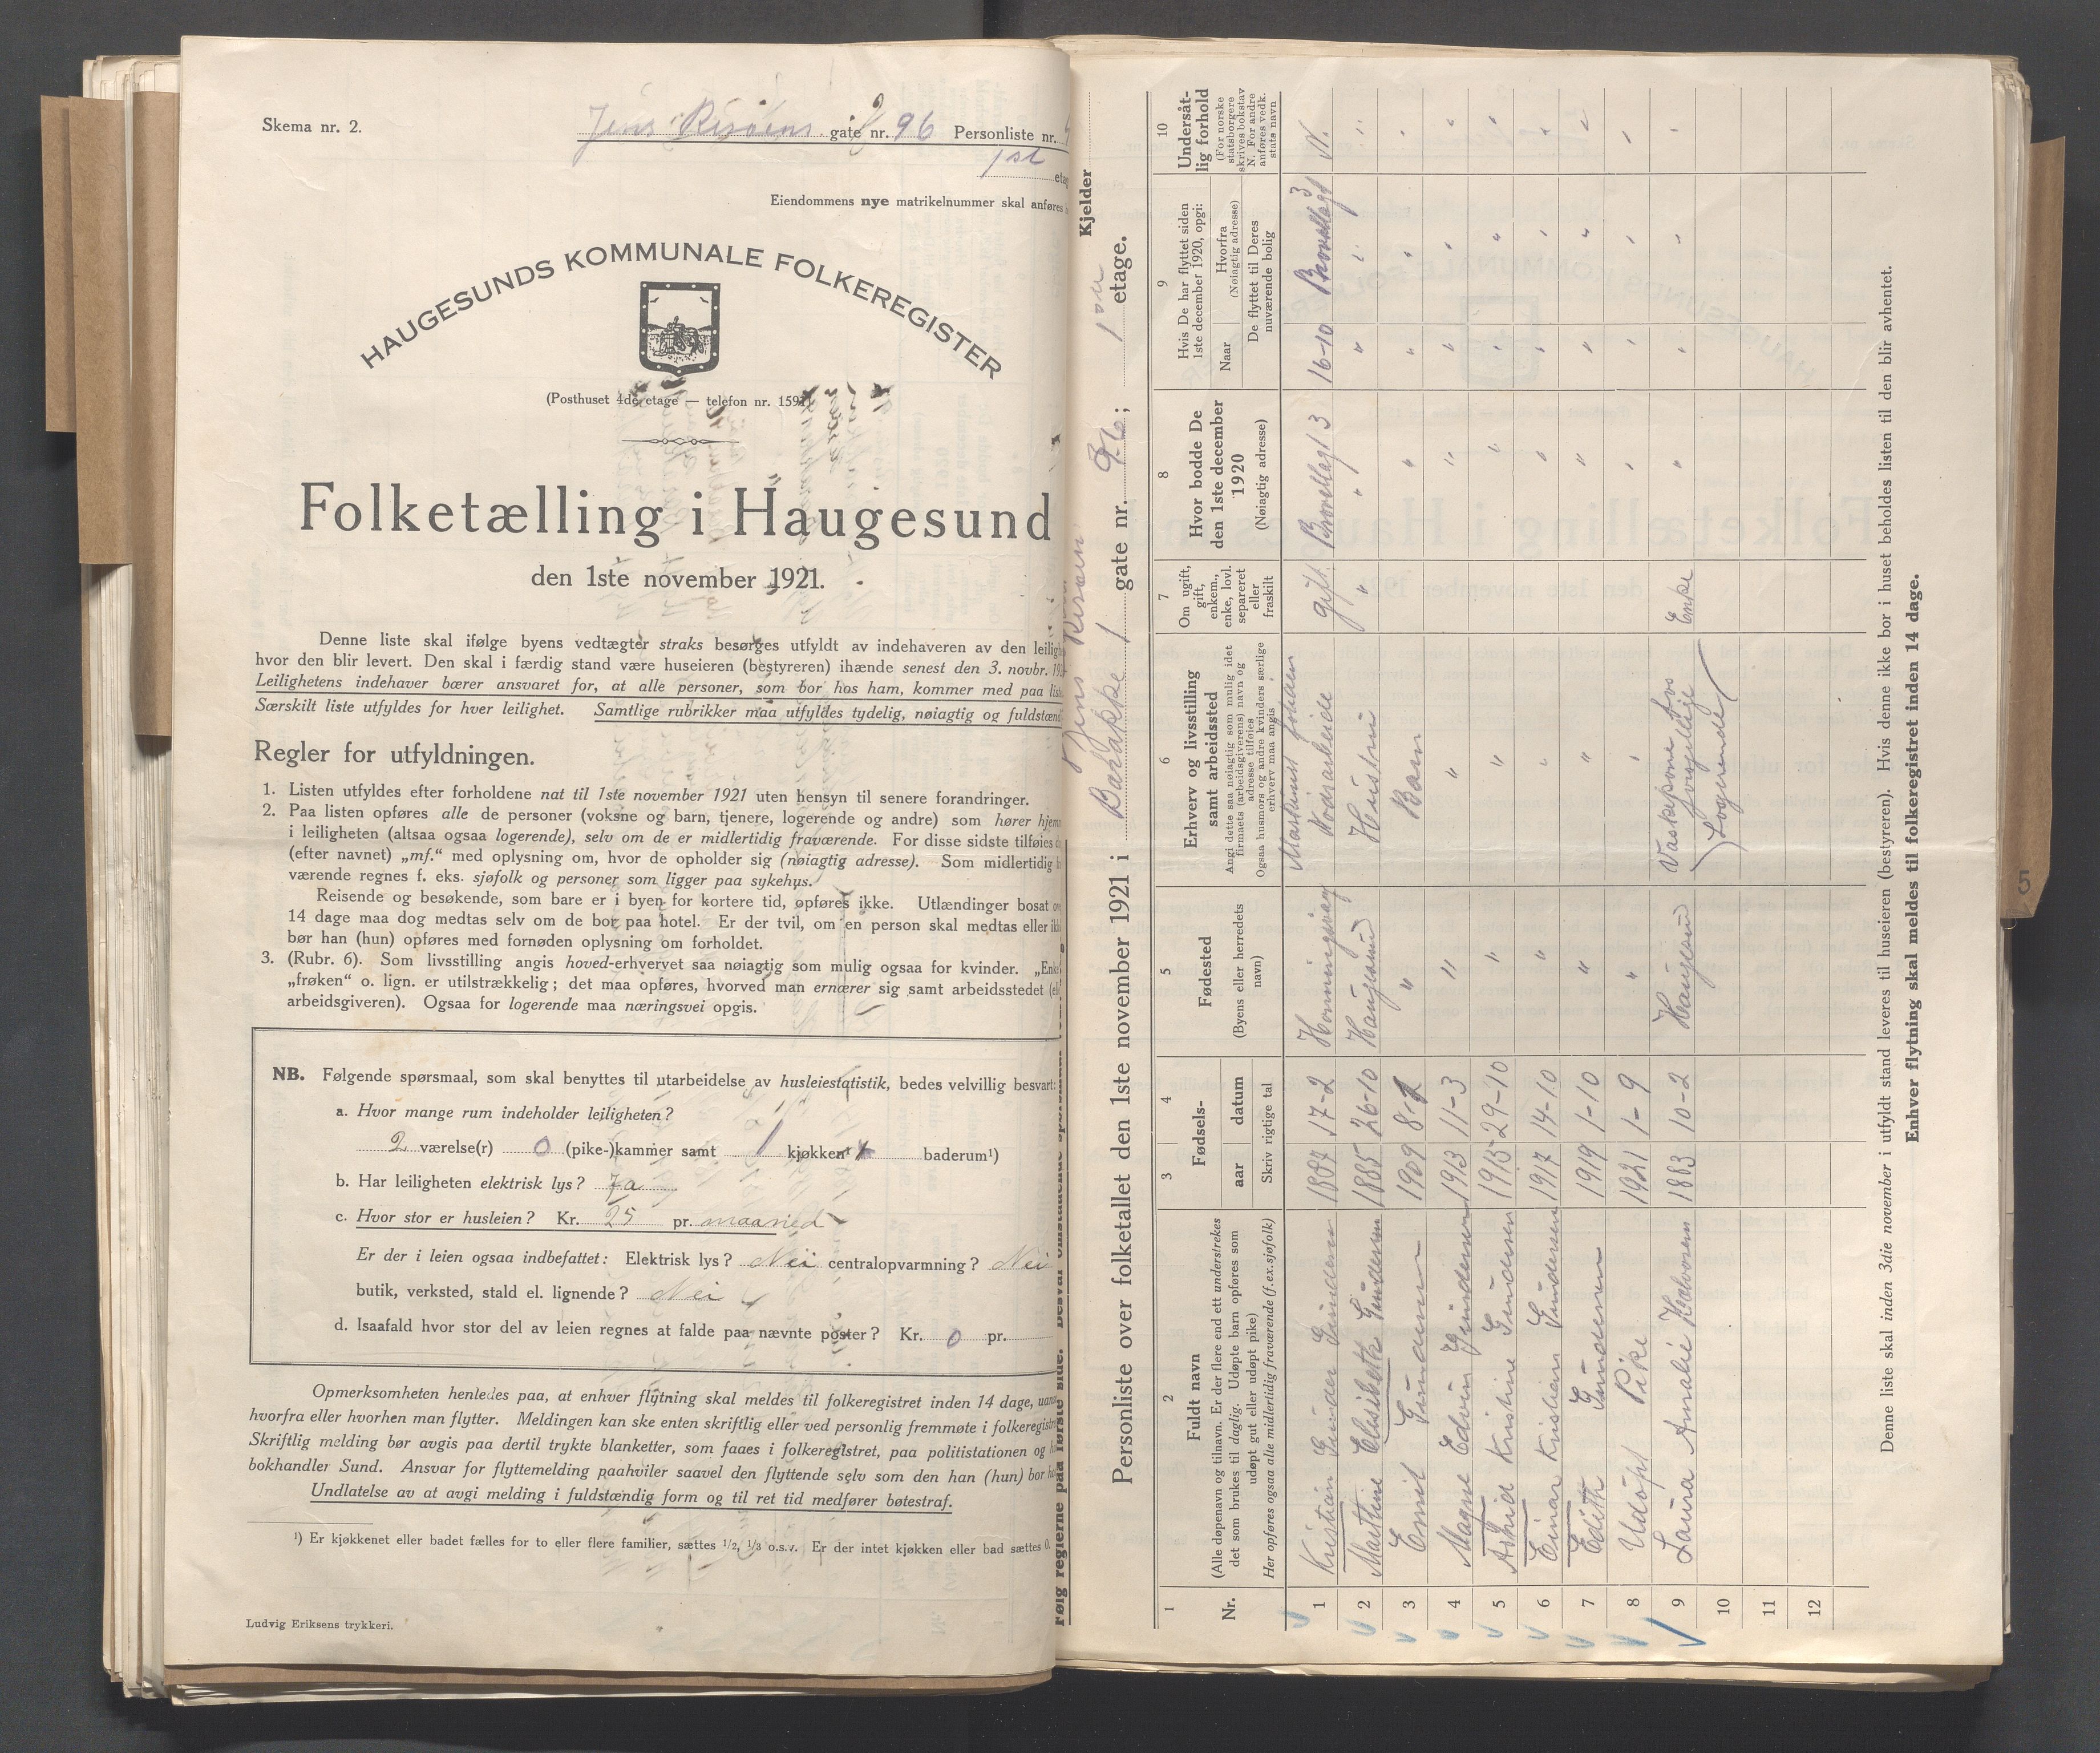 Skema nr. 2.
Jens Risøens gate nr. 96 Personliste nr.
1st etag
Eiendommens nye matrikelnummer skal anføres
HAUGESUNDS KOMMUNALE FOLKEREGISTER
(Posthuset 4de etage — telefon nr. 1597)
Folketælling i Haugesund
den 1ste november 1921.
Denne liste skal ifølge byens vedtægter straks besørges utfyldt av indehaveren av den leiligh
hvor den blir levert. Den skal i færdig stand være huseieren (bestyreren) ihænde senest den 3. novbr. 192
Leilighetens indehaver bærer ansvaret for, at alle personer, som bor hos ham, kommer med paa liste
Særskilt liste utfyldes for hver leilighet. Samtlige rubrikker maa utfyldes tydelig, nøiagtig og fuldstænd
Regler for utfyldningen.
1. Listen utfyldes efter forholdene nat til 1ste november 1921 uten hensyn til senere forandringer.
2. Paa listen opføres alle de personer (voksne og barn, tjenere, logerende og andre) som hører hjem
i leiligheten (altsaa ogsaa logerende), selv om de er midlertidig fraværende. For disse sidste tilføies d
(efter navnet) „mf.“ med oplysning om, hvor de opholder sig (nøiagtig adresse). Som midlertidig
værende regnes f. eks. sjøfolk og personer som ligger paa sykehus.
Reisende og besøkende, som bare er i byen for kortere tid, opføres ikke. Utlændinger bosat ov
14 dage maa dog medtas selv om de bor paa hotel. Er der tvil, om en person skal medtas eller ikk
bør han (hun) opføres med fornøden oplysning om forholdet.
3. (Rubr. 6). Som livsstilling angis hoved-erhvervet saa nøiagtig som mulig ogsaa for kvinder. „Enke
„frøken“ o. lign. er utilstrækkelig; det maa opføres, hvorved man ernærer sig samt arbeidsstedet (ell
arbeidsgiveren). Ogsaa for logerende maa næringsvei opgis.
NB. Følgende spørsmaal, som skal benyttes til utarbeidelse av husleiestatistik, bedes velvillig besvart:
a. Hvor mange rum indeholder leiligheten?
2 værelse(r) 0 (pike-)kammer samt 1 kjøkken¹) baderum¹)
b. Har leiligheten elektrisk lys? Ja
c. Hvor stor er husleien? Kr. 25 pr. maaned
Er der i leien ogsaa indbefattet: Elektrisk lys? Nei centralopvarmning? Nei
butik, verksted, stald el. lignende? Nei
d. Isaafald hvor stor del av leien regnes at falde paa nævnte poster? Kr. 0 pr.
Opmerksomheten henledes paa, at enhver flytning skal meldes til folkeregistret inden 14 dage, uans
hvorfra eller hvorhen man flytter. Meldingen kan ske enten skriftlig eller ved personlig fremmøte i folkeregistr
Skriftlig melding bør avgis paa dertil trykte blanketter, som faaes i folkeregistret, paa politistationen og h
bokhandler Sund. Ansvar for flyttemelding paahviler saavel den flyttende selv som den han (hun) bor ho
Undlatelse av at avgi melding i fuldstændig form og til ret tid medfører bøtestraf.
¹) Er kjøkkenet eller badet fælles for to eller flere familier, sættes 1/2, 1/3 o.s.v. Er der intet kjøkken eller bad sættes 0.
Ludvig Eriksens trykkeri.
Følg reglerne paa første side.
Kjelder
Jens Risøen
Personliste over folketallet den 1ste november 1921 i Barakke 1 gate nr. 96; 1ste etage.
1 Nr.
2 Fuldt navn
(Alle døpenavn og tilnavn. Er der flere end ett understrekes
det som brukes til daglig. Udøpte barn opføres som
udøpt gut eller udøpt pike)
Her opføres ogsaa alle midlertidig fraværende (f.ex. sjøfolk)
3 4 Fødsels-
aar datum
Skriv rigtige tal
5 Fødested
(Byens eller herredets
navn)
6 Erhverv og livsstilling
samt arbeidssted
Angi dette saa nøiagtig som mulig idet
firmaets (arbeidsgiverens) navn og
adresse tilføies
Ogsaa husmors og andre kvinders særlige
erhverv maa angis
7 Om ugift,
gift,
enkem.,
enke, lovl.
separeret
eller
fraskilt
8 Hvor bodde De
den 1ste december
1920
(Nøiagtig adresse)
9 Hvis De har flyttet siden
1ste december 1920, opgi:
Naar Hvorfra
(Nøiagtig adresse)
De flyttet til Deres
nuværende bolig
10 Undersåt-
lig forhold
(For norske
statsborgere
skrives bokstav
N. For andre
anføres vedk.
stats navn
1 Kristian Gunder Gundersen 1887 17-2 Honningsvåg gift 3 16-10 3 N.
2 Martine Elisibeth Gundersen 1885 26-10 Haugesund Hustru " " " " "
3 Emil Gundersen 1909 8- " Barn " " " "
4 Magne Edvin Gundersen 1913 11-3 " " " " " "
5 Astrid Kristine Gundersen 1915 29-10 " " " " " "
6 Einar Kristian Gundersen 1917 14-10 " " " " " "
7 Edith Gundersen 1919 1-10 " " " " " "
8 Udøpt Pike 1921 1-9 " " " " " "
9 Laura Amalie Halvorsen 1883 10-2 Haugesund Vaskekone Enke " " " "
(Logerende)
10
11
12
Denne liste skal inden 3die november i utfyldt stand leveres til huseieren (bestyreren). Hvis denne ikke bor i huset beholdes listen til den blir avhentet.
Enhver flytning skal meldes til folkeregistret inden 14 dage.
5